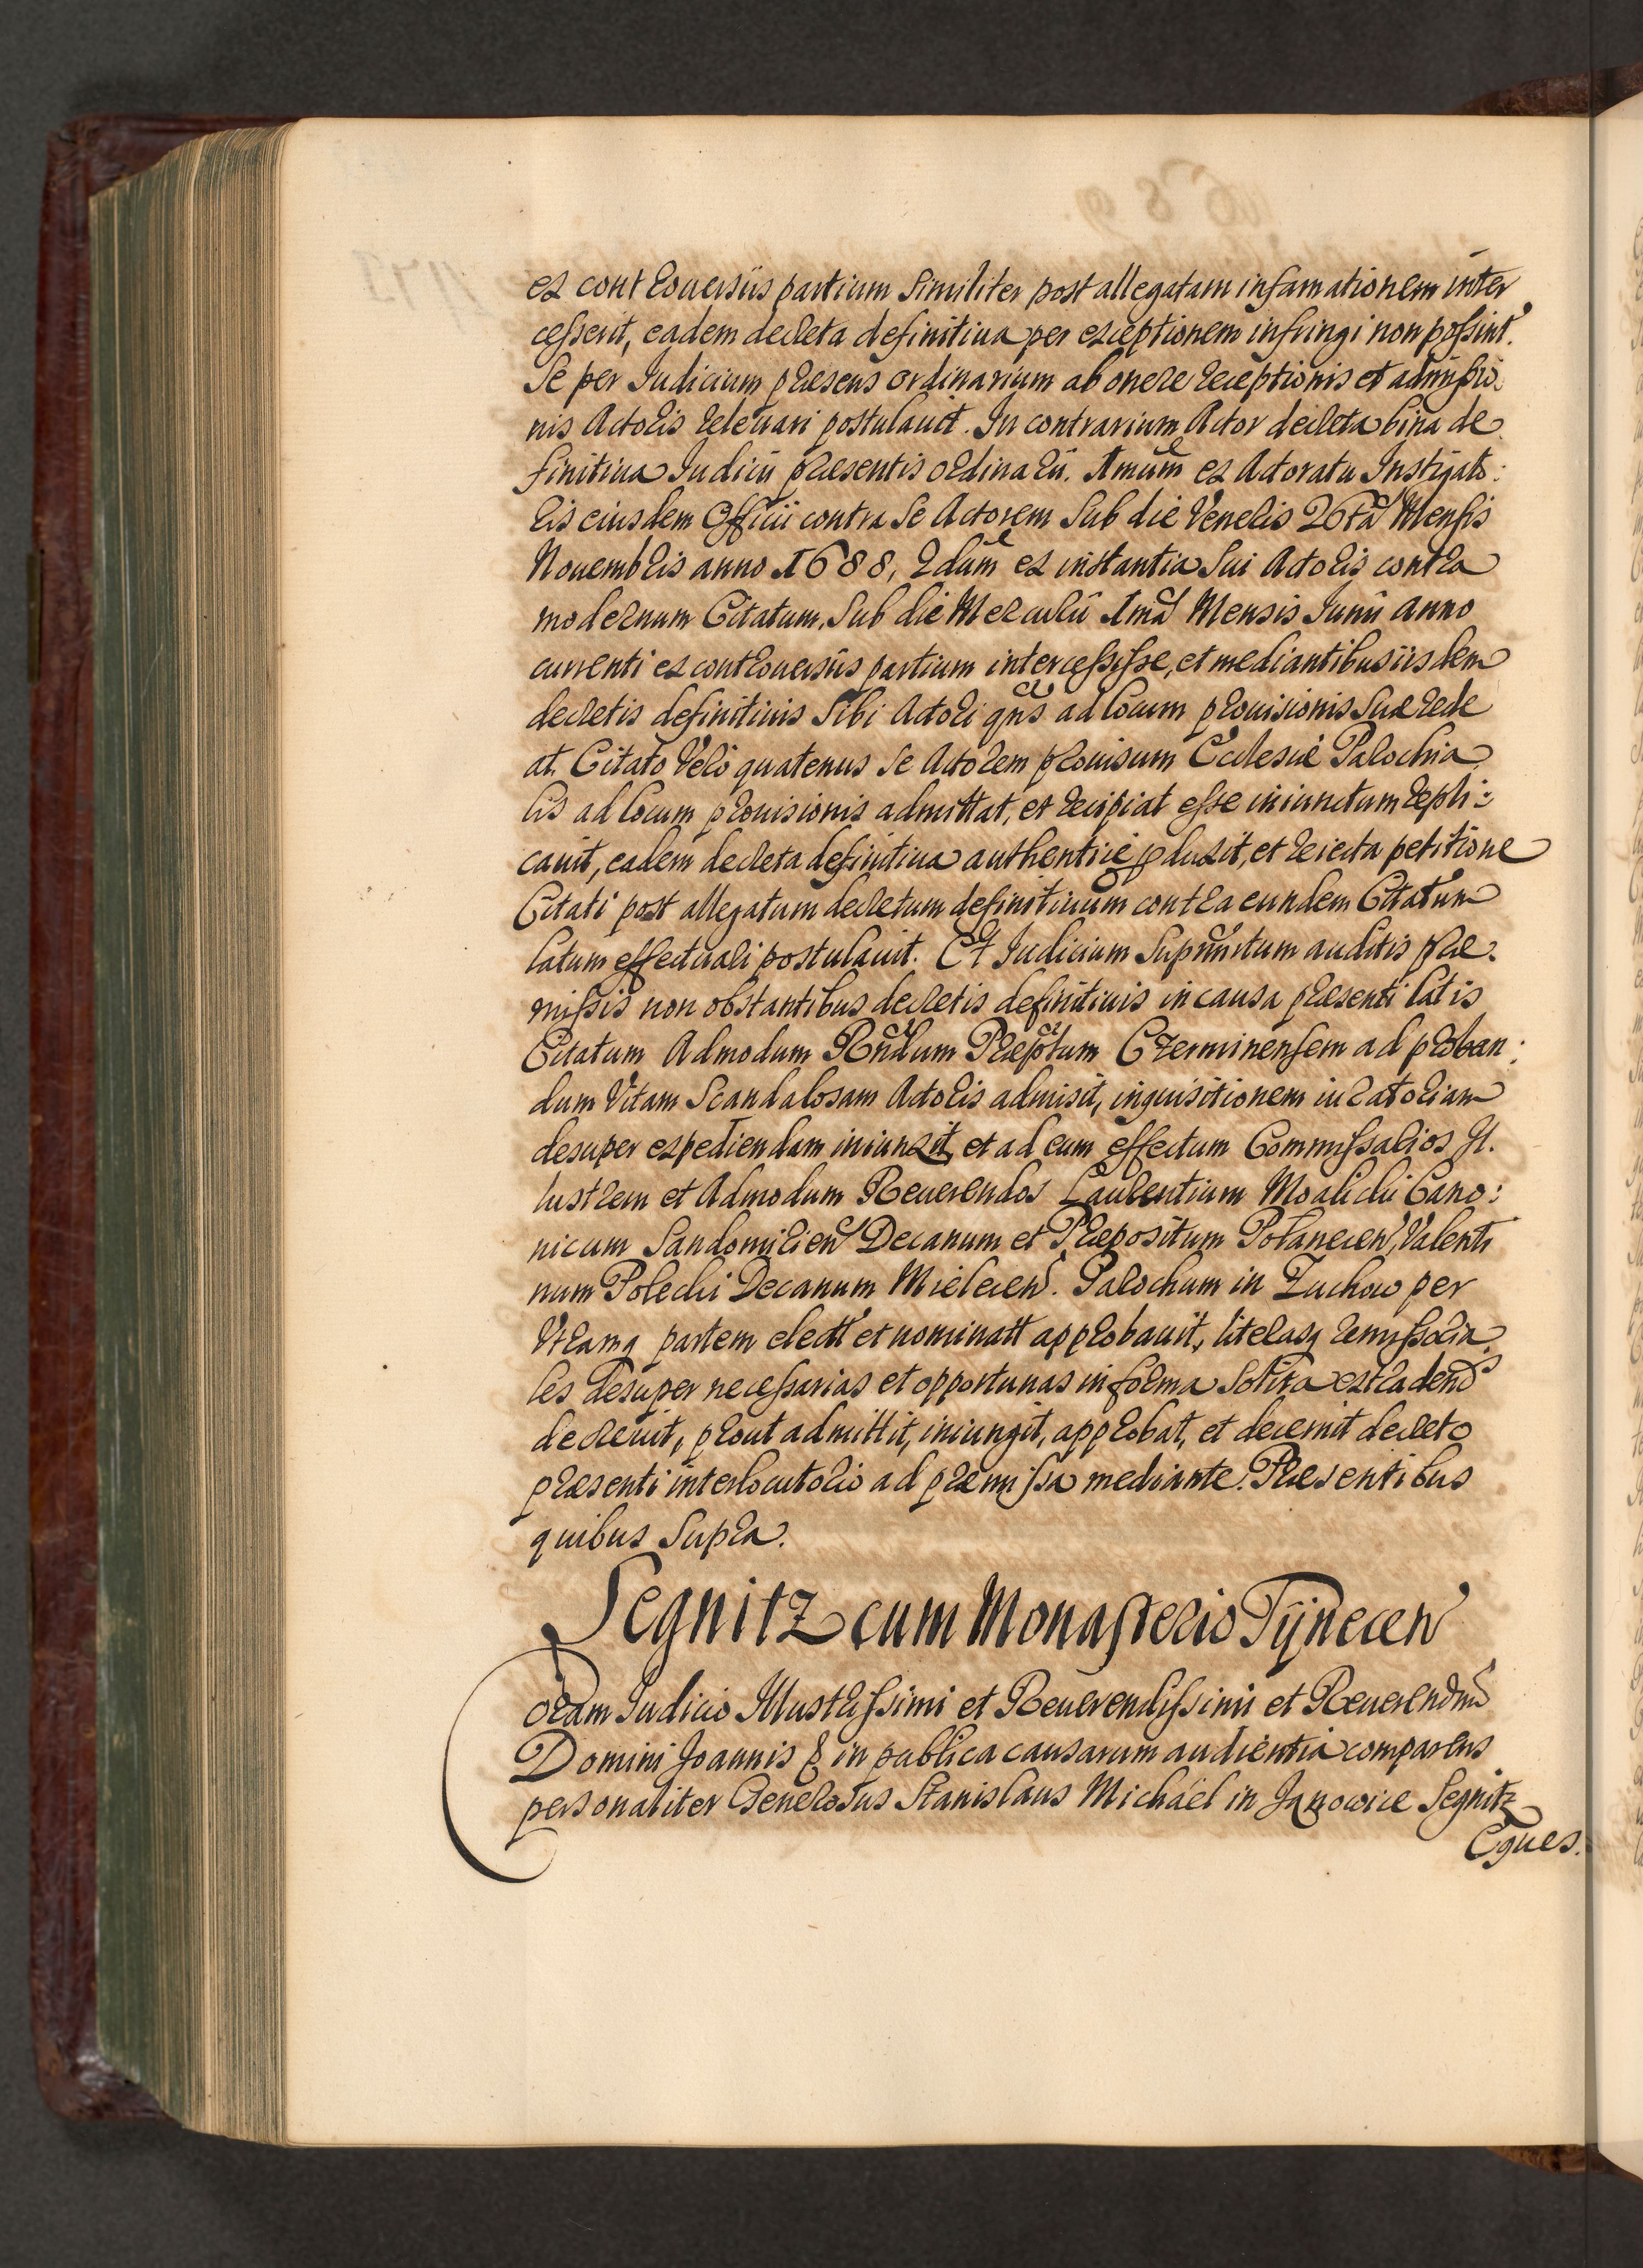 ex controuersiis partium Similiter post allegatam infamationem inter
cesserit, eadem decreta definitiua per exceptionem infringi non possint.
Se per Iudicium præsens ordinarium ab onere receptionis et admissio
nis Actoris releuari postulauit. In contrarium Actor decreta bina de
finitiua Iudicii præsentis ordinarii. 1mum ex Actoratu Instigato:
ris eiusdem Officii contra Se Actorem Sub die Veneris 26ta Mensis
Nouembris anno 1688, 2dum ex instantia Sui Actoris contra
modernum Citatum, Sub die Mercurii 1ma Mensis Iunii anno
currenti ex controuersiis partium intercessisse, et mediantibus iisdem
decretis definitiuis Sibi Actori qns ad locum prouisionis Suæ rede
at. Citato Vero quatenus Se Actorem prouisum Ecclesiæ Parochia
lis ad locum prouisionis admittat, et recipiat esse iniunctum repli:
cauit, eadem decreta definitiua authentice pduxit, et reiecta petitione
Citati post allegatum decretum definitiuum contra eundem Citatum
latum effectuari postulauit. Et Iudicium Supranotum auditis præ:
missis non obstantibus decretis definitiuis in causa præsenti latis
Citatum Admodum Rndum Præpotum Czerminensem ad proban:
dum Vitam Scandalosam Actoris admisit, inquisitionem iuratoriam
desuper expediendam iniunxit, et ad eum effectum Commissarios Il.
lustrem et Admodum Reuerendos Laurentium Moalichi Cano:
nicum Sandomirien Decanum et Præpositum Polanecen, Valenti
num Polechi Decanum Mielecen. Parochum in Zuchow per
Vtramq partem electt et nominatt approbauit, literasq remissoria
les desuper necessarias et opportunas in forma Solita extradend
decreuit, prout admittit, iniungit, approbat, et decernit decreto
præsenti interlocutorio ad præmissa mediante. Præsentibus
quibus Supra.
Segnitz cum Monasterio Tÿnecen
Coram Iudicio Illustrissimi et Reuerendissimi et Reuerendmi
Domini Joannis & in publica causarum audientia comparens
personaliter Generosus Stanislaus Michaël in Janowice Segnitz
Eques.